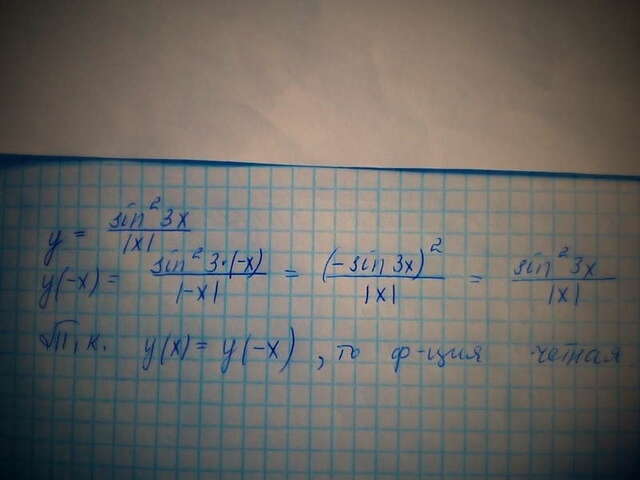 y = sin²3x / |x|
y(-x) = sin²3·(-x) / |-x| = (-sin 3x)² / |x| = sin²3x / |x|
Т.к. y(x) = y(-x), то ф-ция четная